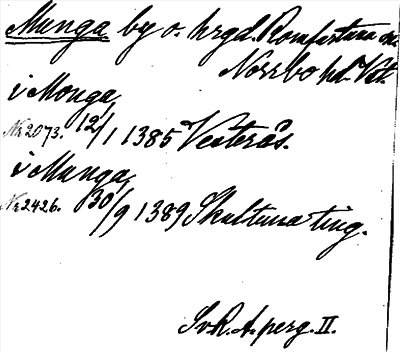 Munga by o. hrgd. Romfartuna sn.
Norrbo hd. Vstm.
i Monga
No 2073. 12/1 1385 Vesterås.
i Munga
No 2426. 30/9 1389 Skultuna ting.
Sv.R.A. perg. II.